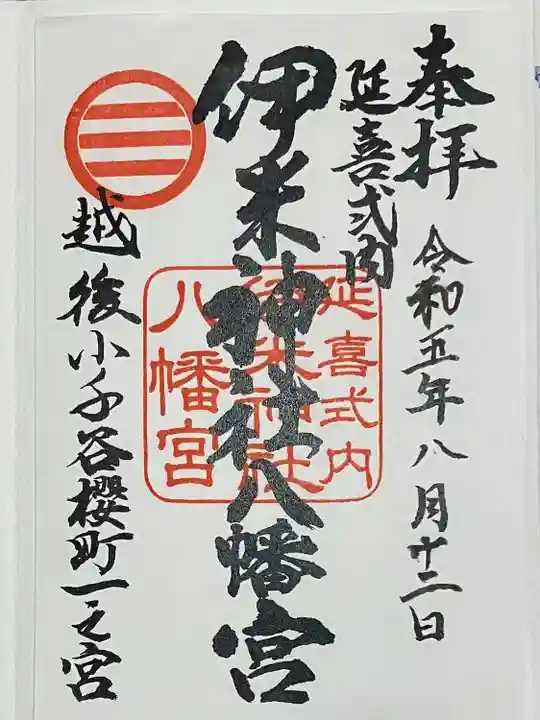 奉拝
令和五年八月十二日
延喜式内
伊米神社八幡宮
延喜式内
伊米神社
八幡宮
越後小千谷櫻町一之宮